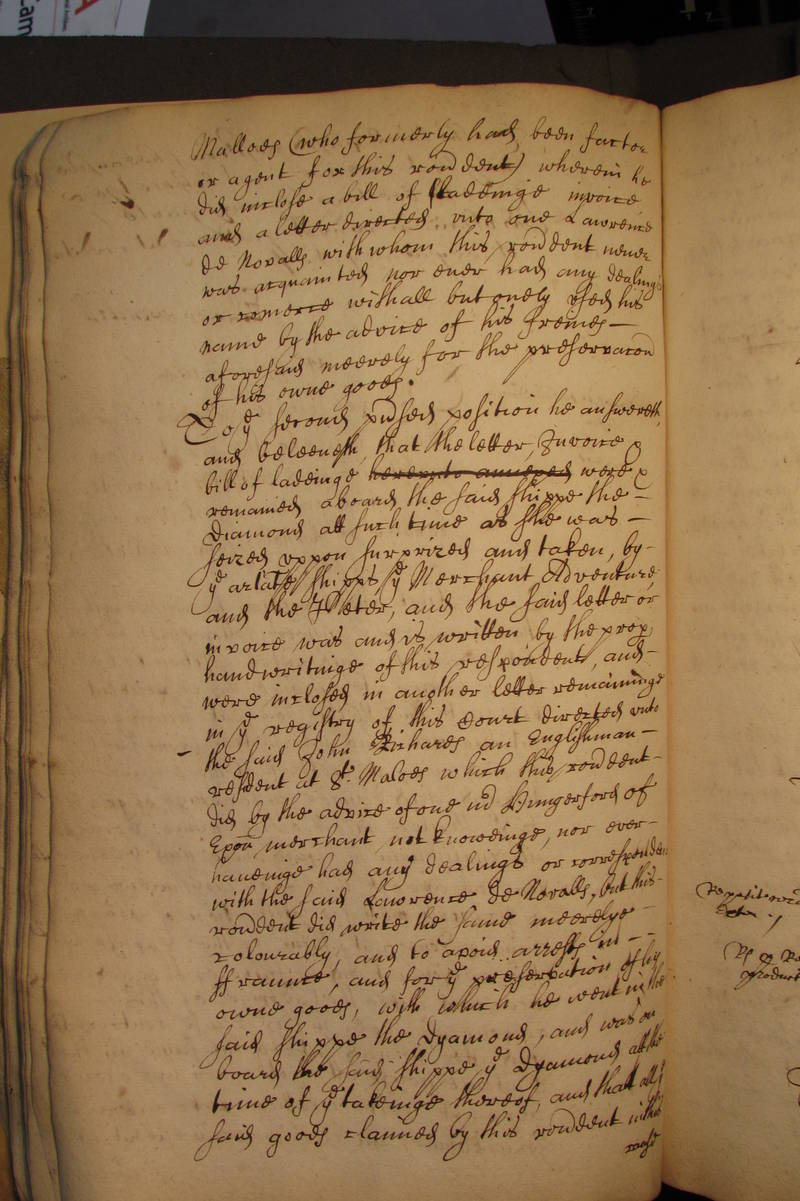 Malloes (who formerly had been factor
or agent for this rondent) wherein he
did inclose a bill of ladeinge invoice
and a letter directed vnto one Lawrence
de Novalls with whom this rondent never
was acquainted nor ever had any dealings
or comerce withall but onely vsed his
name by the advice of his freinds —
aforesaid meerely for the preservacon
of his owne goods.
To ye second position he answereth
and beleeveth, that the letter, Invoice &
bill of ladeinge herevnto annexed were &
remained aboard the said shippe the —
Diamond att such time as she was —
seized vppon surprized and taken, by -
ye arlate shipps ye Merchant Adventure
and the Peter, and the said letter or
invoice was and is written by the prop
handwritinge of this respondent, and -
were inclosed in another letter remaininge
in ye registry of this Court directed vnto
the said John Richards an Englishman —
resident at St. Maloes which this rondent -
did by the advice of one Hungerford of
Exon merchant, not knoweinge, nor ever -
haveinge had any dealings or correspondency
with the said Lawrence de Novalls, but this -
rondent did write the same meerelye —
colourably, and to avoid arrests in — -
ffraunce, and for ye preservation of his
owne goods, with which he went in the
said shippe the Dyamond, and was on
board the said shippe ye Dyamond att the
time of ye takeinge thereof, and that all ye
said goods claimed by this rondent in this
Repetit